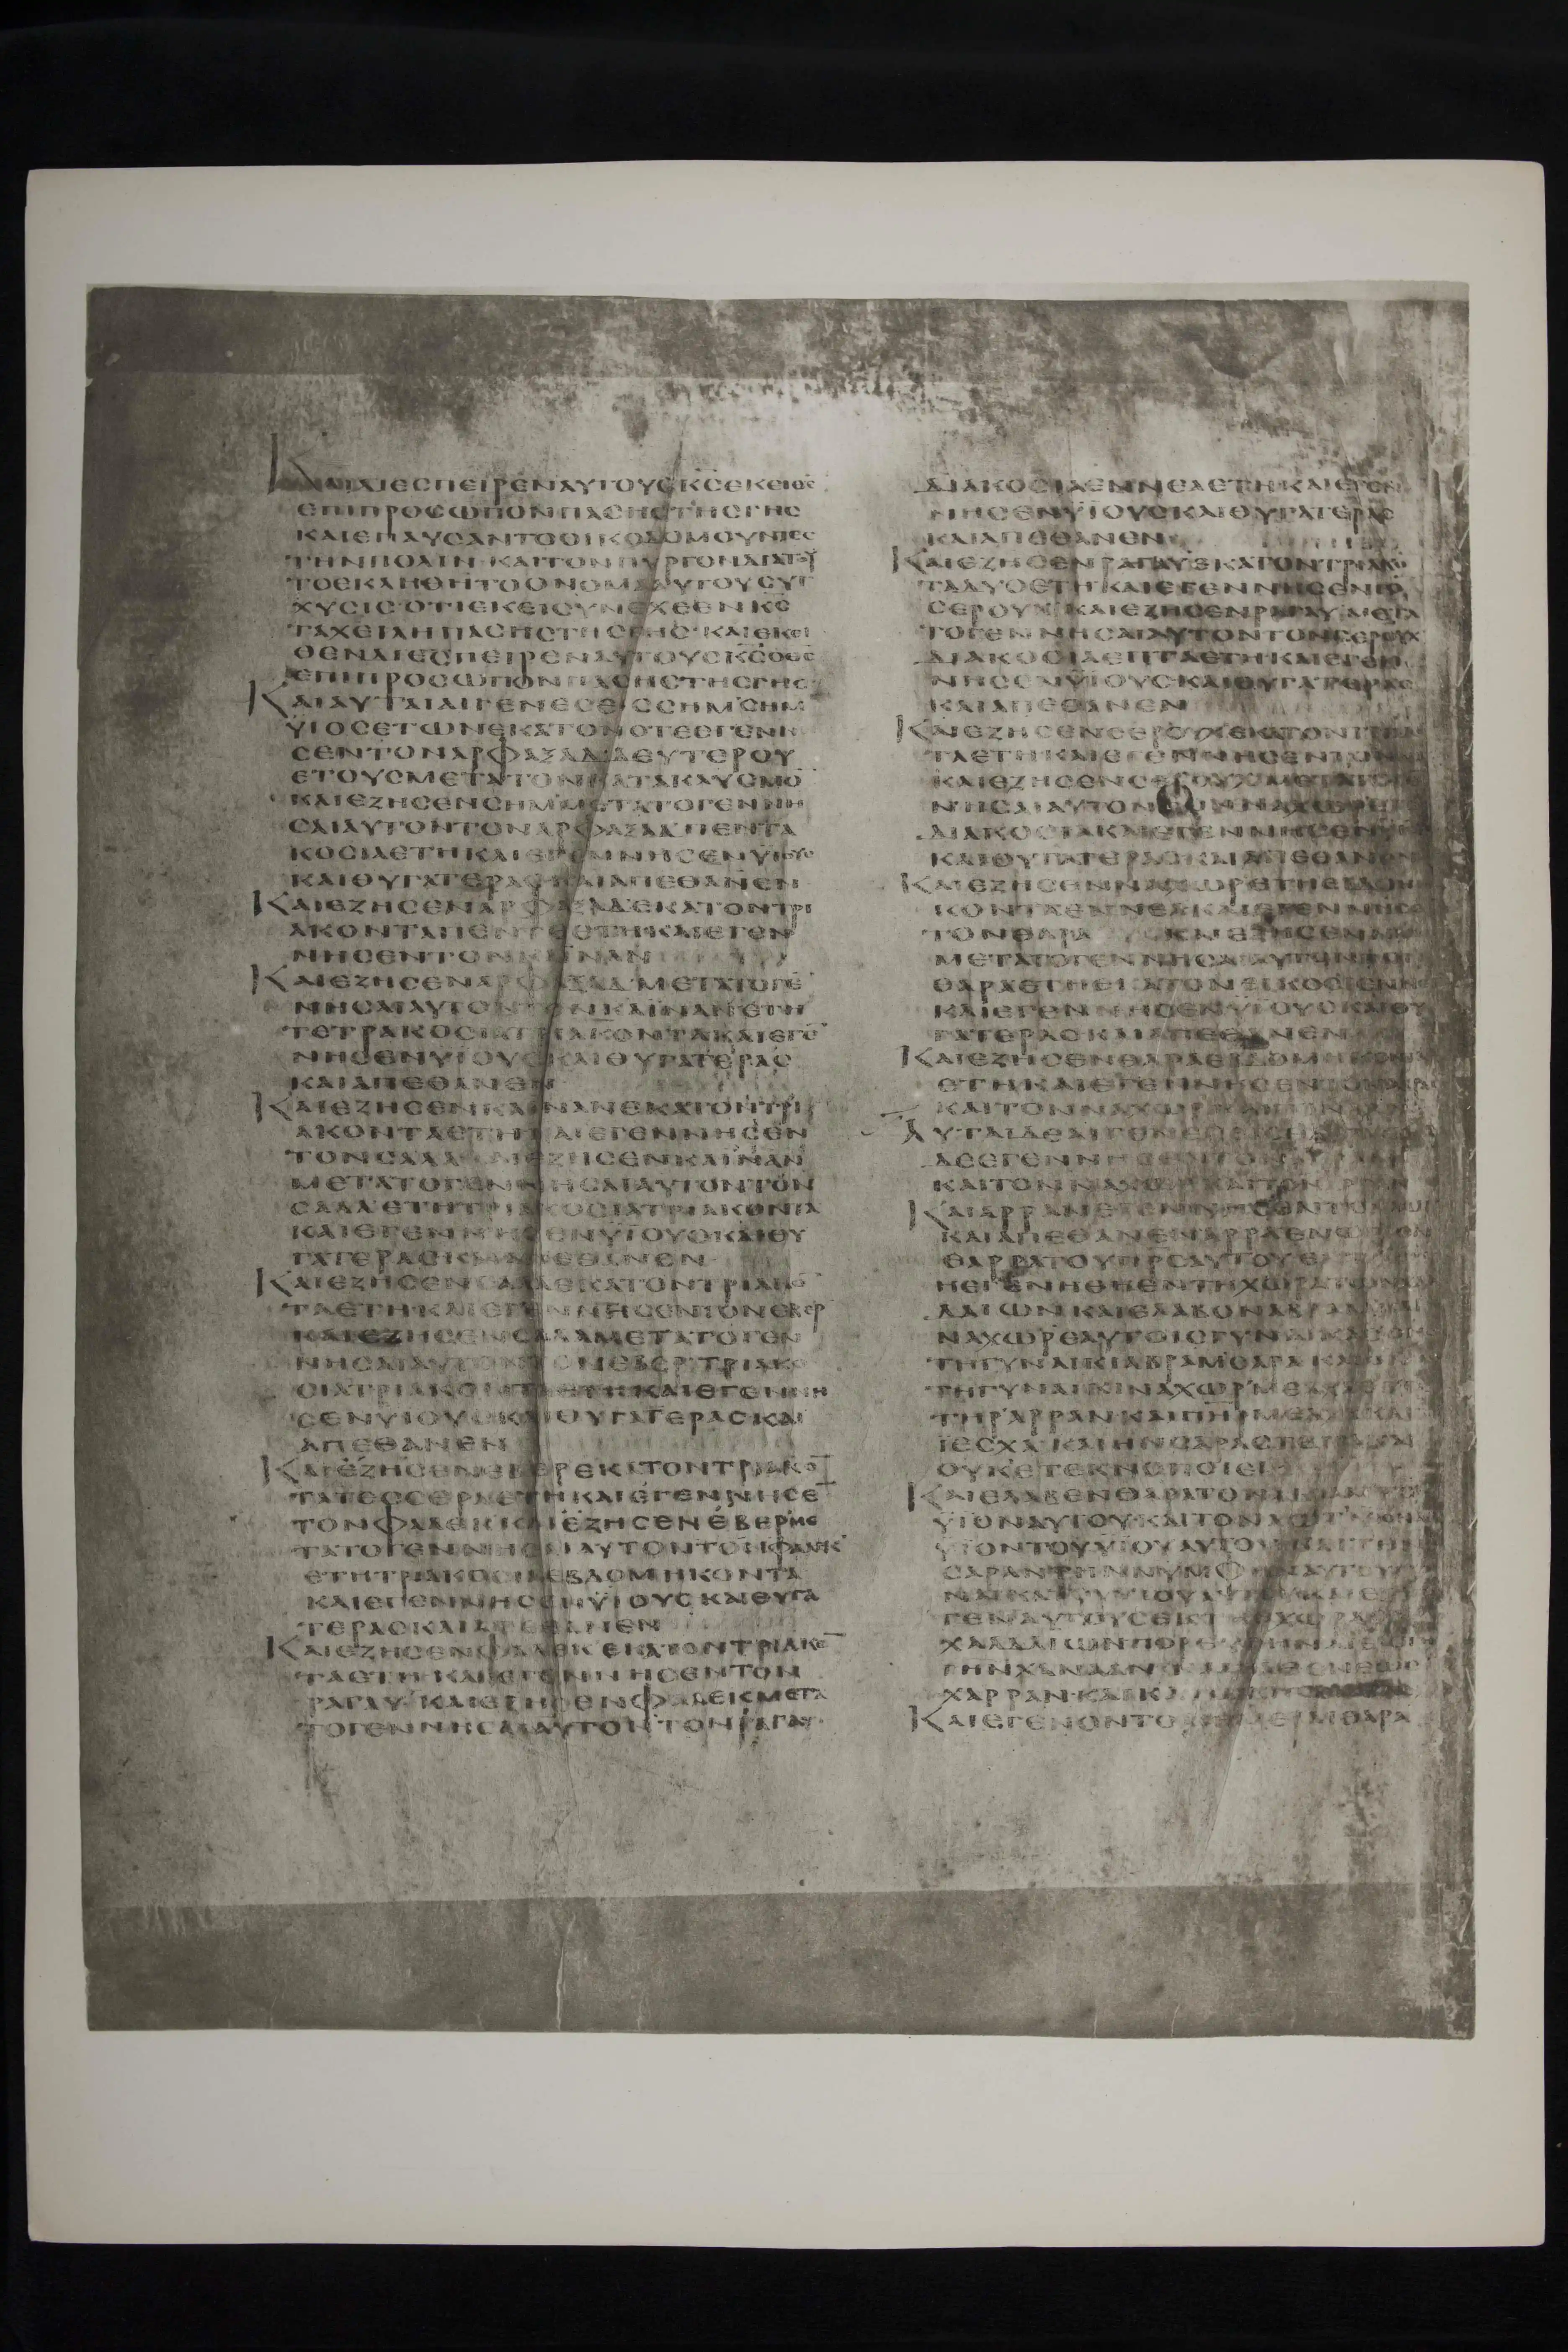 ΚΑΙΔΙΕСΠΕΙΡΕΝΑΥΤΟΥСΚ̅С̅ΕΚΕΙΘΕ
ΕΠΙΠΡΟСΩΠΟΝΠΑСΗСΤΗСΓΗС
ΚΑΙΕΠΑΥСΑΝΤΟΟΙΚΟΔΟΜΟΥΝΤΕС
ΤΗΝΠΟΛΙΝ·ΚΑΙΤΟΝΠΥΡΓΟΝΔΙΑΤΟΥ
ΤΟΕΚΛΗΘΗΤΟΟΝΟΜΑΑΥΤΟΥСΥΓ
ΧΥСΙСΟΤΙΕΚΕΙСΥΝΕΧΕΕΝΚ̅С̅
ΤΑΧΕΙΛΗΠΑСΗСΤΗСΓΗС·ΚΑΙΕΚΕΙ
ΘΕΝΔΙΕСΠΕΙΡΕΝΑΥΤΟΥСΚ̅С̅ΟΘ̅С̅
ΕΠΙΠΡΟСΩΠΟΝΠΑСΗСΤΗСΓΗС
ΚΑΙΑΥΤΑΙΑΙΓΕΝΕСΕΙССΗΜ·СΗΜ
ΥΙΟСΕΤΩΝΕΚΑΤΟΝΟΤΕΕΓΕΝΝΗ
СΕΝΤΟΝΑΡΦΑΞΑΔΔΕΥΤΕΡΟΥ
ΕΤΟΥСΜΕΤΑΤΟΝΚΑΤΑΚΛΥСΜΟ̅
ΚΑΙΕΖΗСΕΝСΗΜ·ΜΕΤΑΤΟΓΕΝΝΗ
СΑΙΑΥΤΟΝΤΟΝΑΡΦΑΞΑΔΠΕΝΤΑ
ΚΟСΙΑΕΤΗΚΑΙΕΓΕΝΝΗСΕΝΥΙΟΥС
ΚΑΙΘΥΓΑΤΕΡΑСΚΑΙΑΠΕΘΑΝΕΝ
ΚΑΙΕΖΗСΕΝΑΡΦΑΞΑΔΕΚΑΤΟΝΤΡΙ
ΑΚΟΝΤΑΠΕΝΤΕΕΤΗΚΑΙΕΓΕΝ
ΝΗСΕΝΤΟΝΚΑΙΝΑΝ
ΚΑΙΕΖΗСΕΝΑΡΦΑΞΑΔ·ΜΕΤΑΤΟΓΕ̅
ΝΗСΑΙΑΥΤΟΝΤΟΝΚΑΙΝΑΝΕΤΗ
ΤΕΤΡΑΚΟСΙΑΤΡΙΑΚΟΝΤΑΚΑΙΕΓΕ̅
ΝΗСΕΝΥΙΟΥСΚΑΙΘΥΓΑΤΕΡΑС
ΚΑΙΑΠΕΘΑΝΕΝ
ΚΑΙΕΖΗСΕΝΚΑΙΝΑΝΕΚΑΤΟΝΤΡΙ
ΑΚΟΝΤΑΕΤΗΚΑΙΕΓΕΝΝΗСΕΝ
ΤΟΝСΑΛΑΚΑΙΕΖΗСΕΝΚΑΙΝΑΝ
ΜΕΤΑΤΟΓΕΝΝΗСΑΙΑΥΤΟΝΤΟΝ
СΑΛΑΕΤΗΤΡΙΑΚΟСΙΑΤΡΙΑΚΟΝΤΑ
ΚΑΙΕΓΕΝΝΗСΕΝΥΙΟΥСΚΑΙΘΥ
ΓΑΤΕΡΑСΚΑΙΑΠΕΘΑΝΕΝ
ΚΑΙΕΖΗСΕΝСΑΛΑΕΚΑΤΟΝΤΡΙΑΚΟ̅
ΤΑΕΤΗΚΑΙΕΓΕΝΝΗСΕΝΤΟΝΕΒΕΡ
ΚΑΙΕΖΗСΕΝСΑΛΑΜΕΤΑΤΟΓΕΝ
ΝΗСΑΙΑΥΤΟΝΤΟΝΕΒΕΡ·ΤΡΙΑΚΟ
СΙΑΤΡΙΑΚΟΝΤΑΕΤΗΚΑΙΕΓΕΝΝΗ
СΕΝΥΙΟΥСΚΑΙΘΥΓΑΤΕΡΑСΚΑΙ
ΑΠΕΘΑΝΕΝ
ΚΑΙΕΖΗСΕΝΕΒΕΡΕΚΑΤΟΝΤΡΙΑΚΟ̅
ΤΑΤΕССΕΡΑΕΤΗΚΑΙΕΓΕΝΝΗСΕ
ΤΟΝΦΑΛΕΚΚΑΙΕΖΗСΕΝΕΒΕΡΜΕ
ΤΑΤΟΓΕΝΝΗСΑΙΑΥΤΟΝΤΟΝΦΑΛΕΚ
ΕΤΗΤΡΙΑΚΟСΙΑΕΒΔΟΜΗΚΟΝΤΑ
ΚΑΙΕΓΕΝΝΗСΕΝΥΙΟΥСΚΑΙΘΥΓΑ
ΤΕΡΑСΚΑΙΑΠΕΘΑΝΕΝ
ΚΑΙΕΖΗСΕΝΦΑΛΕΚΕΚΑΤΟΝΤΡΙΑΚΟ̅
ΤΑΕΤΗΚΑΙΕΓΕΝΝΗСΕΝΤΟΝ
ΡΑΓΑΥ·ΚΑΙΕΖΗСΕΝΦΑΛΕΚΜΕΤΑ
ΤΟΓΕΝΝΗСΑΙΑΥΤΟΝΤΟΝΡΑΓΑΥ
ΔΙΑΚΟСΙΑΕΝΝΕΑΕΤΗΚΑΙΕΓΕΝ
ΝΗСΕΝΥΙΟΥСΚΑΙΘΥΓΑΤΕΡΑС
ΚΑΙΑΠΕΘΑΝΕΝ
ΚΑΙΕΖΗСΕΝΡΑΓΑΥΕΚΑΤΟΝΤΡΙΑΚΟ̅
ΤΑΔΥΟΕΤΗΚΑΙΕΓΕΝΝΗСΕΝΤΟ̅
СΕΡΟΥΧ·ΚΑΙΕΖΗСΕΝΡΑΓΑΥΜΕΤΑ
ΤΟΓΕΝΝΗСΑΙΑΥΤΟΝΤΟΝСΕΡΟΥΧ
ΔΙΑΚΟСΙΑΕΠΤΑΕΤΗΚΑΙΕΓΕΝ
ΝΗСΕΝΥΙΟΥСΚΑΙΘΥΓΑΤΕΡΑС
ΚΑΙΑΠΕΘΑΝΕΝ
ΚΑΙΕΖΗСΕΝСΕΡΟΥΧΕΚΑΤΟΝΤΡΙΑΚΟΝ
ΤΑΕΤΗΚΑΙΕΓΕΝΝΗСΕΝΤΟΝ
ΚΑΙΕΖΗСΕΝСΕΡΟΥΧΜΕΤΑΤΟΓΕ
ΝΗСΑΙΑΥΤΟΝΤΟΝΝΑΧΩΡΕΤΗ
ΔΙΑΚΟСΙΑΚΑΙΕΓΕΝΝΗСΕΝΥΙ
ΚΑΙΘΥΓΑΤΕΡΑСΚΑΙΑΠΕΘΑΝΕΝ
ΚΑΙΕΖΗСΕΝΝΑΧΩΡΕΤΗΕΒΔΟΜΗ
ΚΟΝΤΑΕΝΝΕΑΚΑΙΕΓΕΝΝΗСΕ
ΤΟΝΘΑΡΑΚΑΙΕΖΗСΕΝΝΑΧΩΡ
ΜΕΤΑΤΟΓΕΝΝΗСΑΙΑΥΤΟΝΤΟΝ
ΘΑΡΑΕΤΗΕΚΑΤΟΝΕΙΚΟСΙΕΝΝΕΑ
ΚΑΙΕΓΕΝΝΗСΕΝΥΙΟΥСΚΑΙΘΥ
ΓΑΤΕΡΑСΚΑΙΑΠΕΘΑΝΕΝ
ΚΑΙΕΖΗСΕΝΘΑΡΑΕΒΔΟΜΗΚΟΝΤΑ
ΕΤΗΚΑΙΕΓΕΝΝΗСΕΝΤΟΝΑΒΡΑΜ
ΚΑΙΤΟΝΝΑΧΩΡ
ΑΥΤΑΙΔΕΑΙΓΕΝΕСΕΙСΘΑΡΑ
ΔΕΕΓΕΝΝΗСΕΝΤΟΝΑΒΡΑΜ
ΚΑΙΤΟΝΝΑΧΩΡΚΑΙΤΟΝΑΡΡΑΝ
ΚΑΙΑΡΡΑΝΕΓΕΝΝΗСΕΝΤΟΝΛΩΤ
ΚΑΙΑΠΕΘΑΝΕΝΑΡΡΑΝΕΝΩΠΙΟΝ
ΘΑΡΡΑΤΟΥΠΡ̅С̅ΑΥΤΟΥΕΝ
ΗΕΓΕΝΗΘΗΕΝΤΗΧΩΡΑΤΩΝΧΑΛ
ΔΑΙΩΝΚΑΙΕΛΑΒΟΝΑΒΡΑΜΚΑΙ
ΝΑΧΩΡΕΑΥΤΟΙСΓΥΝΑΙΚΑС
ΤΗΓΥΝΑΙΚΙΑΒΡΑΜСΑΡΑΚΑΙ
ΤΗΓΥΝΑΙΚΙΝΑΧΩΡΜΕΛΧΑ
ΤΗΡΑΡΡΑΝΚΑΙΠΗ̅Ρ̅ΜΕΛΧΑΚΑΙ
ΙΕСΧΑ·ΚΑΙΗΝСΑΡΑСΤΕΙΡΑΚΑΙ
ΟΥΚΕΤΕΚΝΟΠΟΙΕΙ
ΚΑΙΕΛΑΒΕΝΘΑΡΑΤΟΝΑΒΡΑΜ
ΥΙΟΝΑΥΤΟΥΚΑΙΤΟΝΛΩΤ
ΥΙΟΝΤΟΥΥΙΟΥΑΥΤΟΥΚΑΙΤΗΝ
СΑΡΑΝΤΗΝΝΥΜΦΗΝΑΥΤΟΥ
ΝΑΙΚΑ
ΓΕΝΑΥΤΟΥСΕΚΤΗСΧΩΡΑС
ΧΑΛΔΑΙΩΝΠΟΡΕΥΘΗΝΑΙΕΙС
ΓΗΝΧΑΝΑΑΝ
ΧΑΡΡΑΝ·ΚΑΙ
ΚΑΙΕΓΕΝΟΝΤΟΑΙΗΜΕΡΑΙΘΑΡΑ